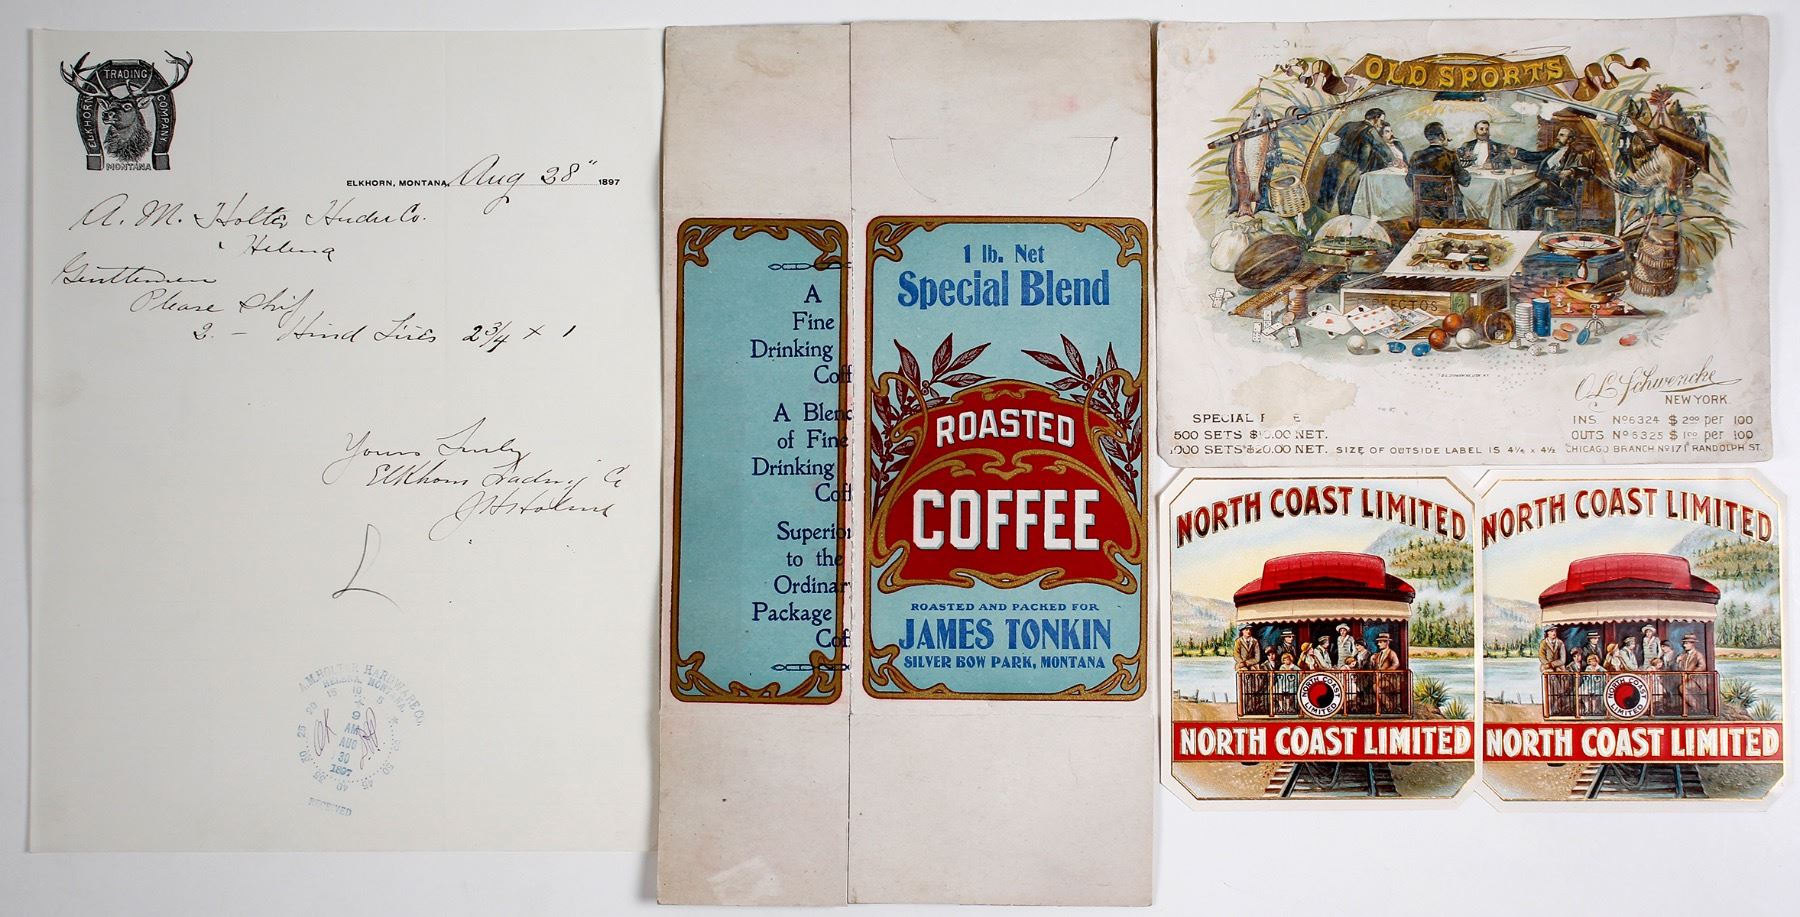 ELKHORN TRADING COMPANY
MONTANA
ELKHORN, MONTANA, Aug 28" 1897
A. M. Holter Hdw Co.
Helena
Gentlemen
Please Ship
2 - Hind Tires 2 3/4 x 1
Yours Truly
Elkhorn Trading Co
A.M. HOLTER HARDWARE CO.
HELENA, MONTANA.
OK
AM
AUG
30
1897
RECEIVED
A
Fine
Drinking
Coff
A Blend
of Fine
Drinking
Coff
Superior
to the
Ordinar
Package
Cof
1 lb. Net
Special Blend
ROASTED
COFFEE
ROASTED AND PACKED FOR
JAMES TONKIN
SILVER BOW PARK, MONTANA
OLD SPORTS
O L Schwencke
NEW YORK.
SPECIAL
500 SETS NET.
1000 SETS $20.00 NET. SIZE OF OUTSIDE LABEL IS 4¼ x 4½
INS Nº 6324 $2.00 per 100
OUTS Nº 6325 $1.00 per 100
CHICAGO BRANCH Nº 171 RANDOLPH ST.
NORTH COAST LIMITED
NORTH COAST
LIMITED
NORTH COAST LIMITED
NORTH COAST LIMITED
NORTH COAST
LIMITED
NORTH COAST LIMITED